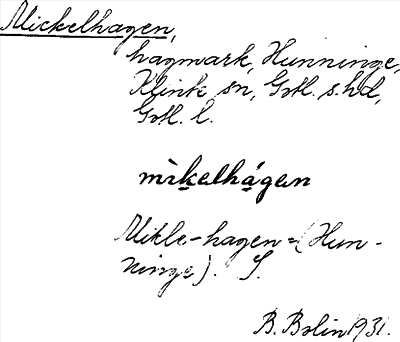 Mickelhagen,
hagmark, Hunninge,
Klinte sn, Gotl. s. hd,
Gotl. l.
mìkelhágen
Mikle-hagen = (Hun-
ninge). S.
B. Bolin 1931.